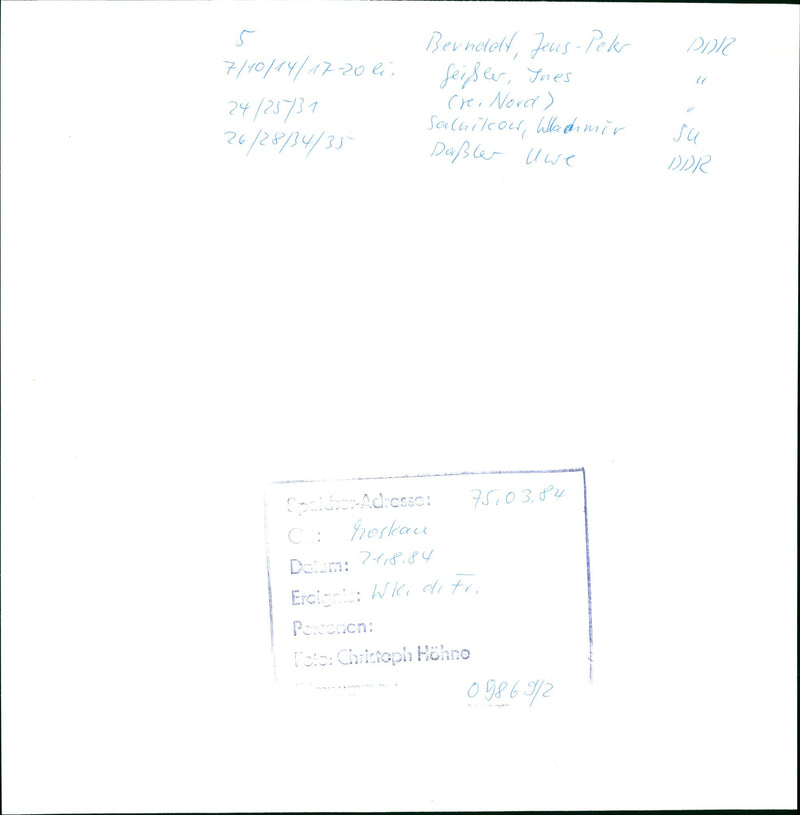 5 Berndt, Jens-Peter DDR
7/10/14/17-20 li. Geißler, Ines "
24/25/31 (re. Nord) "
26/28/34/35 Salnikow, Wladimir SU
Daßler Uwe DDR
Speicher-Adresse: 75.03.84
Ort: Moskau
Datum: 21.8.84
Ereignis: WK. d. Fr.
Personen:
Foto: Christoph Höhne
09869/2